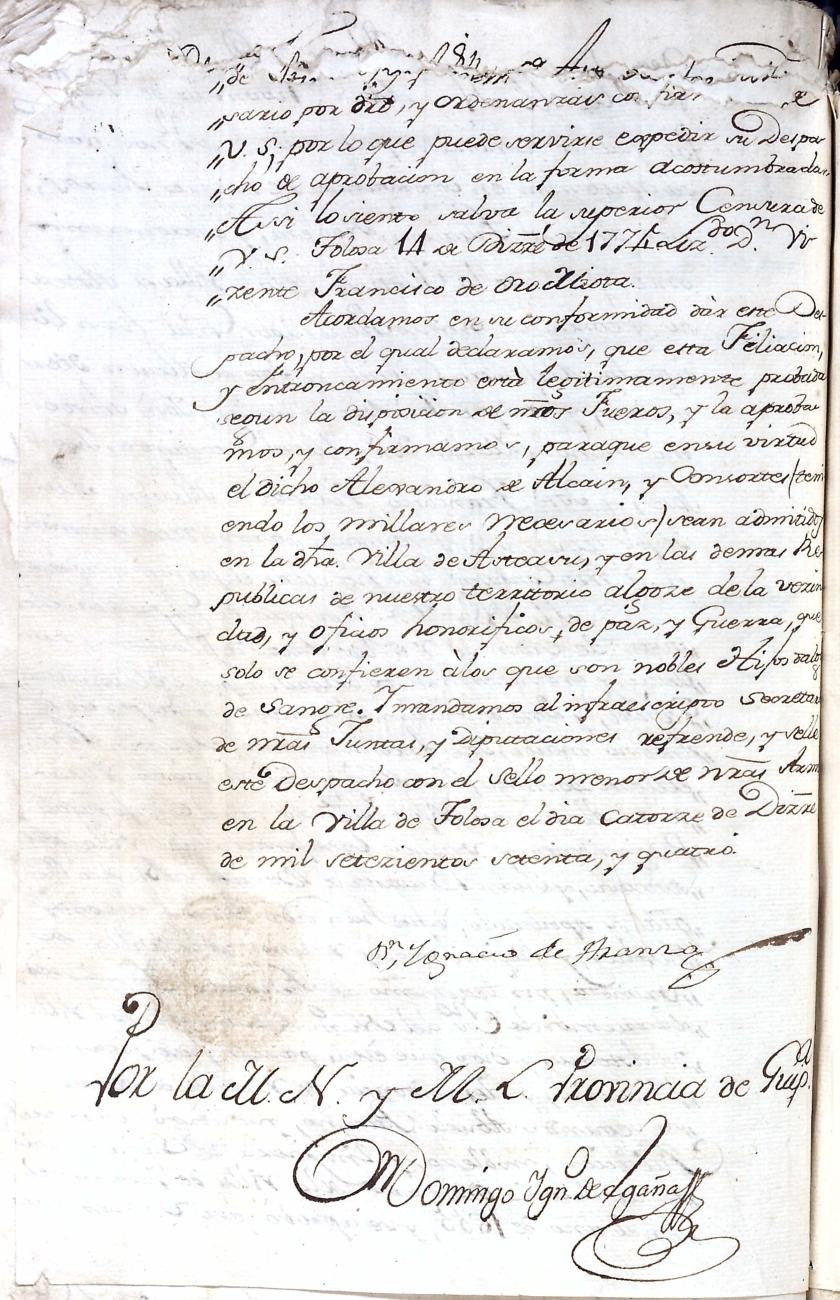 „sario por dro, y ordenanzas
„V. S. por lo que puede servirse expedir su Despa-
„cho de aprobacion en la forma acostumbrada.
„Assi lo siento salva la superior Censura de
„V. S. Tolosa 14 de Dizre de 1774 Dn. Vi-
„zente Francisco de Oro Miota.
Acordamos en su conformidad dàr este Des-
pacho, por el qual declaramos, que esta Filiacion,
y Entroncamiento està legitimamente probada
segun la disposicion de nros Fueros, y la aproba-
mos, y confirmamos, paraque en su virtud
el dicho Alexandro de Alcain, y Consortes (teni-
endo los millares necesarios) sean admitidos
en la dha. Villa de Asteasu, y en las demas Re-
publicas de nuestro territorio al goze de la vezin-
dad, y oficios honorificos, de paz, y Guerra, que
solo se confieren à los que son nobles Hijos dalgo
de Sangre. Y mandamos al infraescripto Secretar
de nras Juntas, y Diputaciones refrende, y selle
este Despacho con el sello menor de nras Arm
en la Villa de Tolosa el dia Catorze de Dizre
de mil setezientos setenta, y quatro.
Dn. Ygnacio de Aranza
Por la M. N. y M. L. Provincia de Guip.a
Domingo Ign. de Egaña